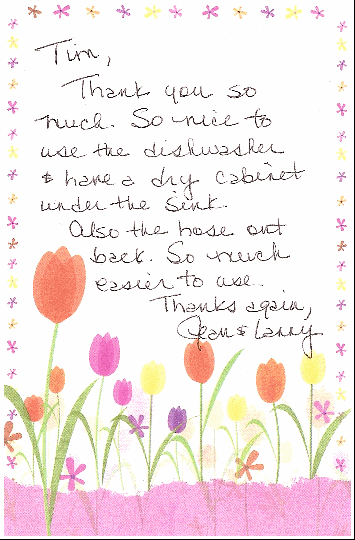 Tim,
Thank you so
much. So nice to
use the dishwasher
& have a dry cabinet
under the sink.
Also the hose out
back. So much
easier to use.
Thanks again,
Jean & Lanny